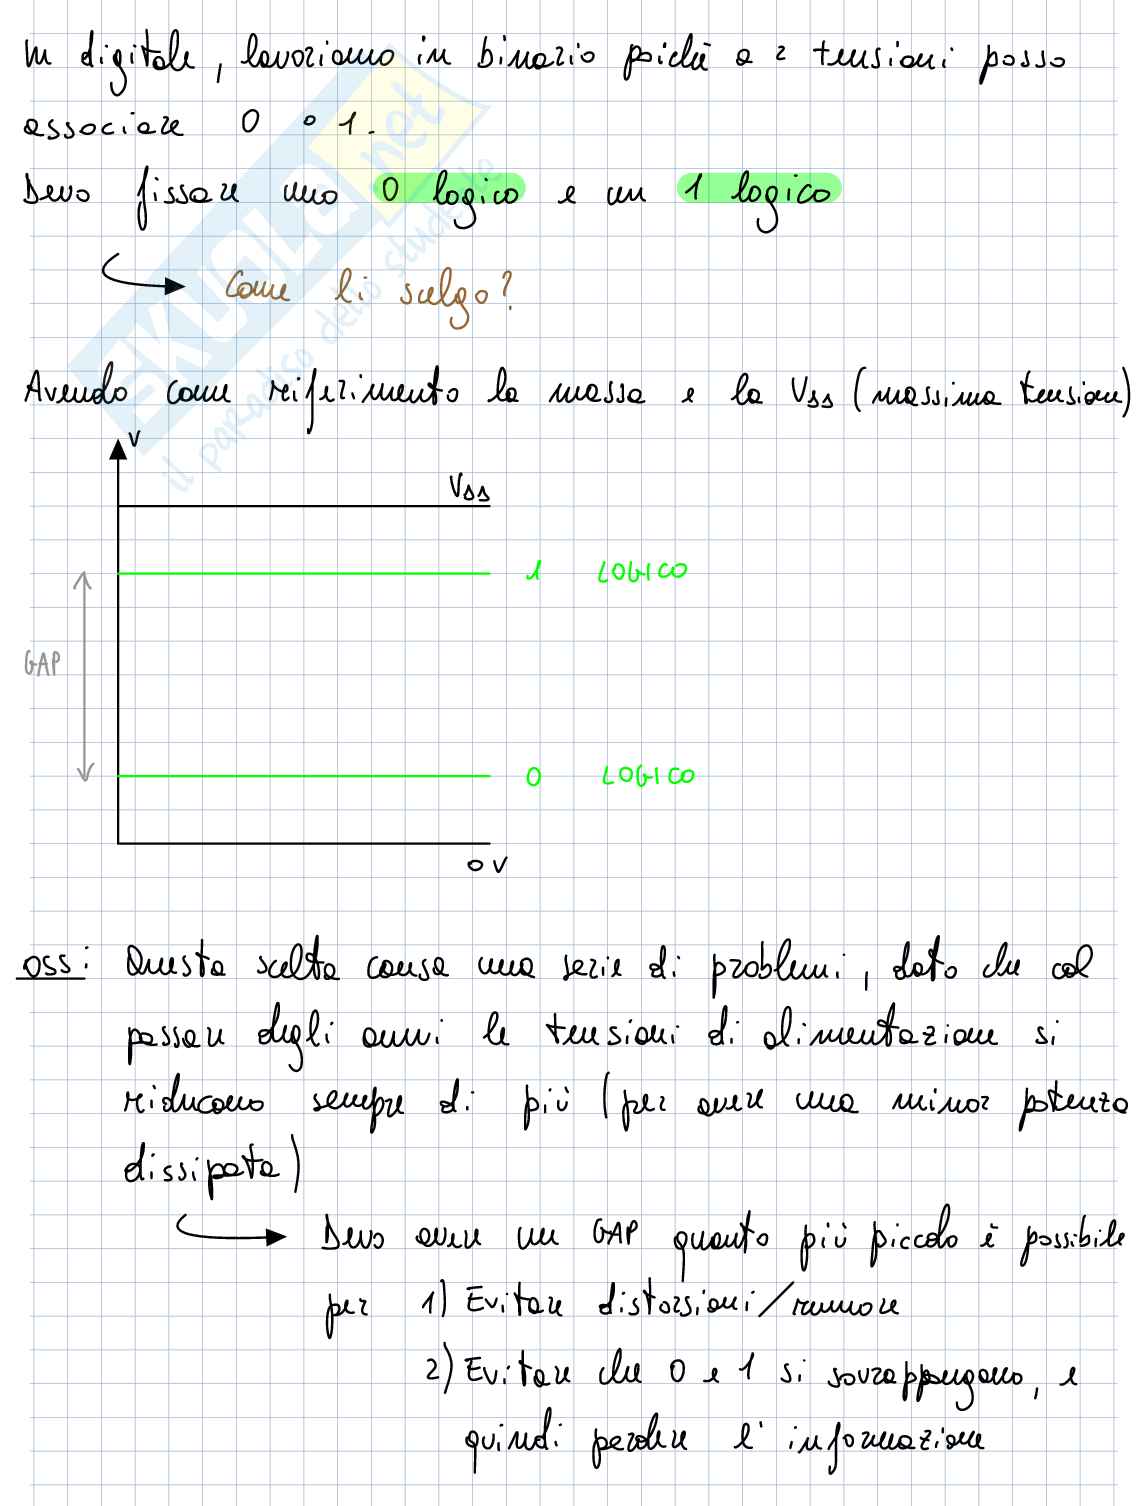 In digitale, lavoriamo in binario poiché a 2 tensioni posso
associare 0 o 1.
Devo fissare uno 0 logico e un 1 logico
Come li scelgo?
Avendo come riferimento la massa e la Vss (massima tensione)
V
Vss
1 LOGICO
GAP
0 LOGICO
0 V
oss: Questa scelta causa una serie di problemi, dato che col
passare degli anni le tensioni di alimentazione si
riducono sempre di più (per avere una minor potenza
dissipata)
Devo avere un GAP quanto più piccolo è possibile
per 1) Evitare distorsioni/rumore
2) Evitare che 0 e 1 si sovrappongano, e
quindi perdere l'informazione
SKUOLA.net
il paradiso dello studente